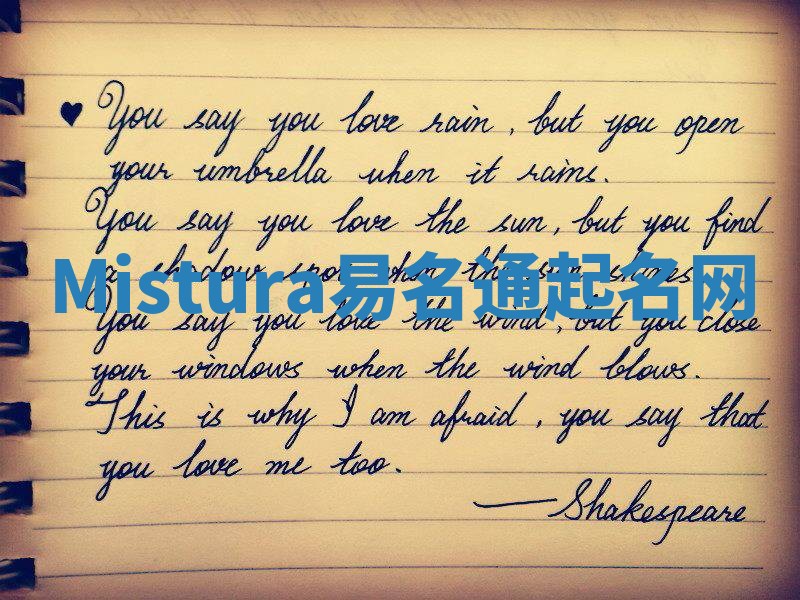 ♥ You say you love rain, but you open
your umbrella when it rains.
You say you love the sun, but you find
a shadow spot when the sun shines.
Mistura易名通起名网
You say you love the wind, but you close
your windows when the wind blows.
This is why I am afraid, you say that
you love me too.
—Shakespeare